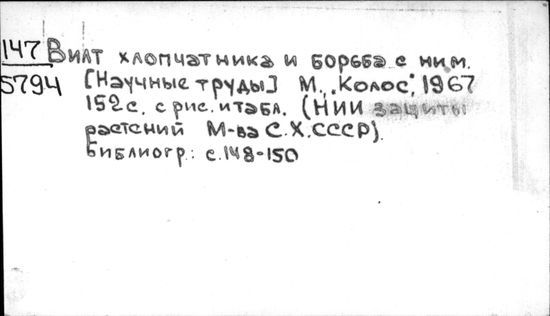 147 Вилт хлопчатника и борьба с ним.
5794 [Научные труды] М., „Колос", 1967
152с. с рис. и табл. (НИИ защиты
растений М-ва С.Х.СССР).
Библиогр.: с.148-150